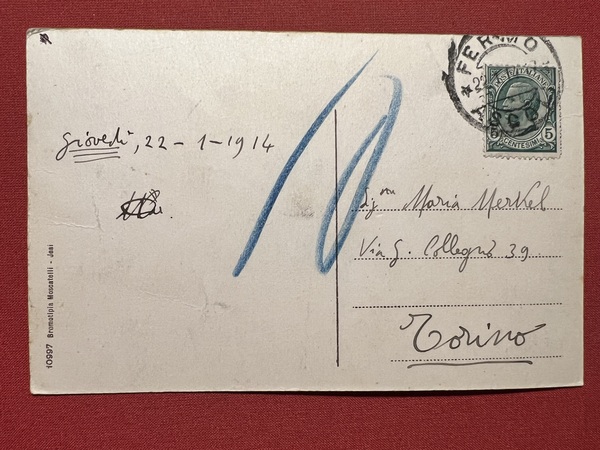 giovedì, 22-1-1914
10
FERMO
ASCO
POSTE ITALIANE
5 CENTESIMI 5
Sig.na Maria Merkel
Via G. Collegno 39
Torino
10997 Bromotipia Moscatelli - Jesi